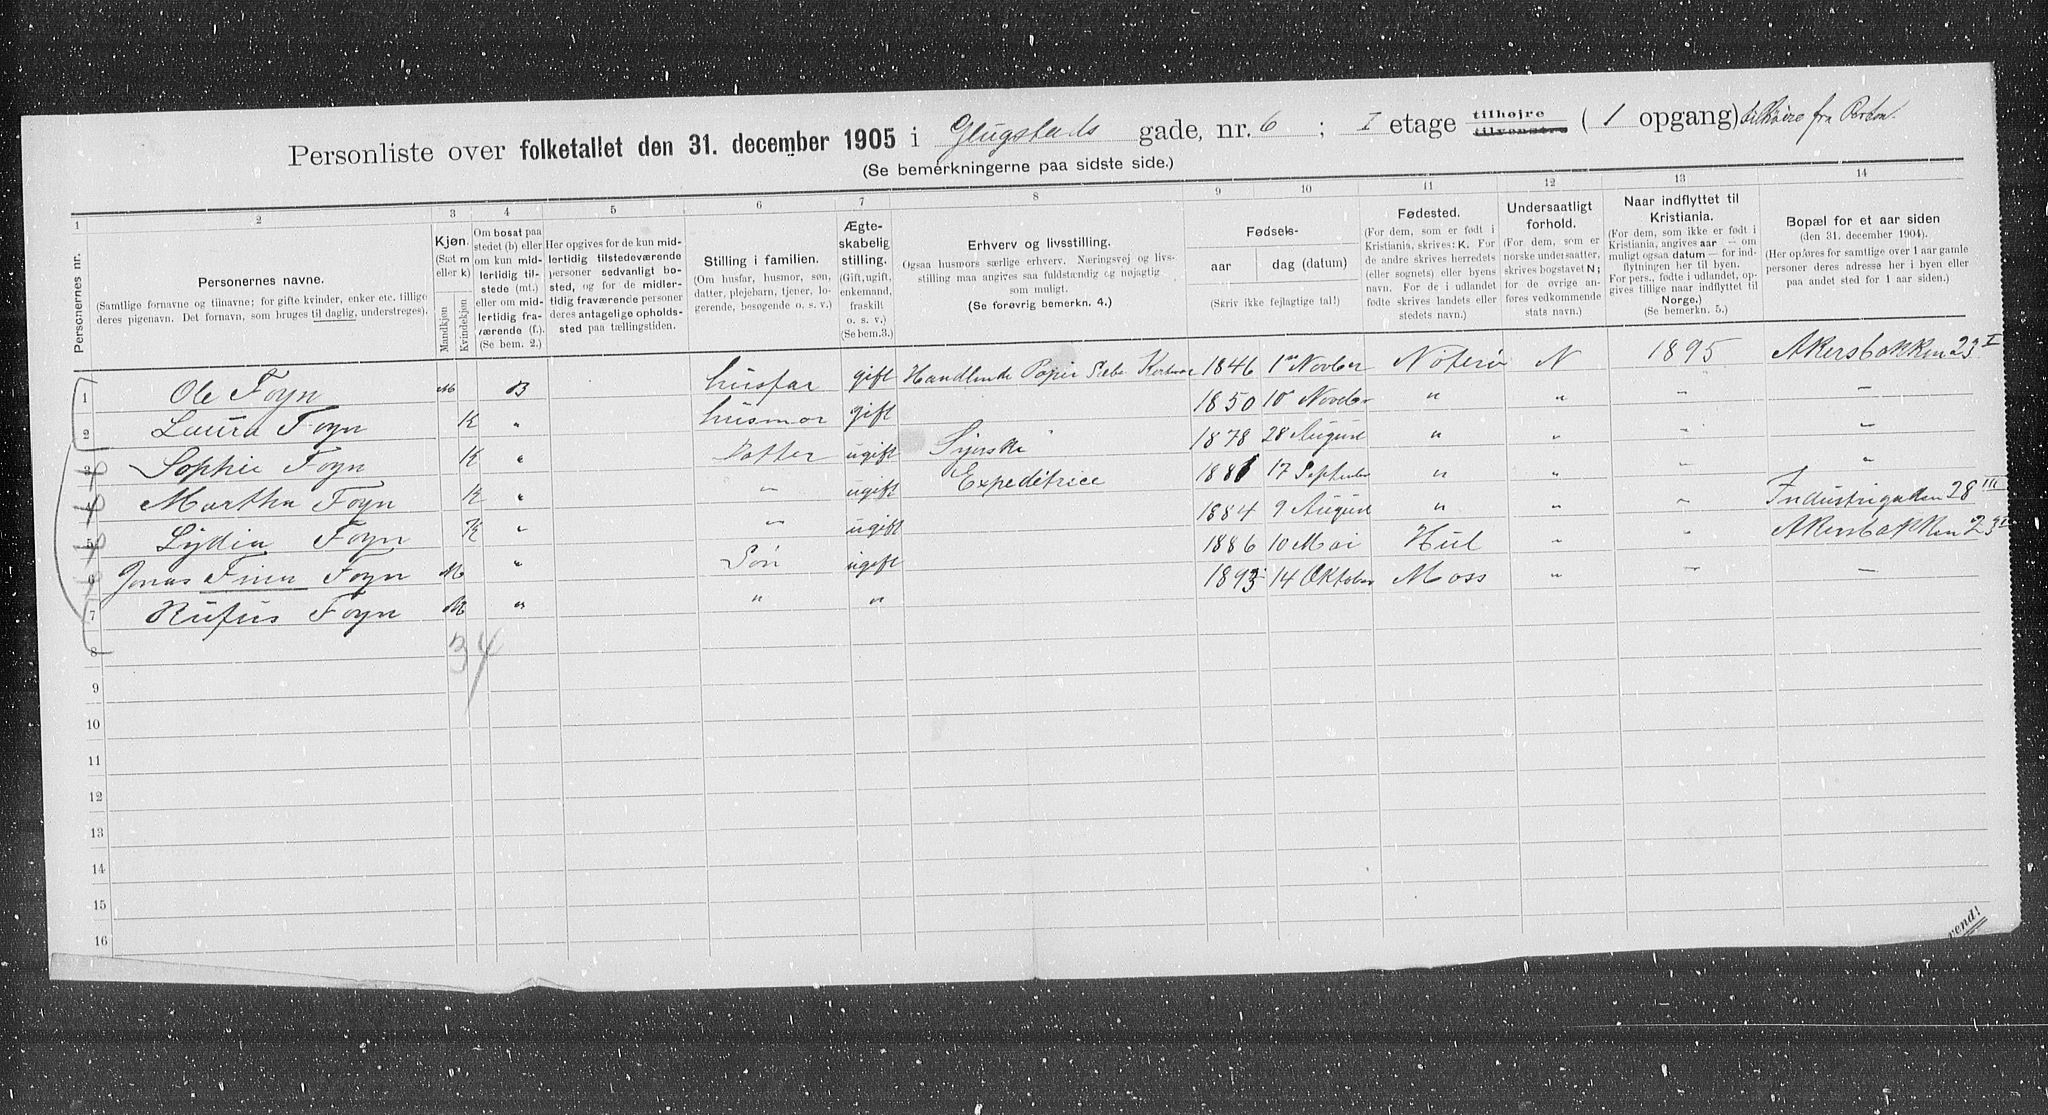 Personliste over folketallet den 31. december 1905 i Glugstads gade, nr. 6 ; I etage tilhøjre tilvenstre ( 1 opgang) tilhøire fra Porten.
(Se bemerkningerne paa sidste side.)
1 2 3 4 5 6 7 8 9 10 11 12 13 14
Personernes nr.
Personernes navne.
(Samtlige fornavne og tilnavne; for gifte kvinder, enker etc. tillige deres pigenavn. Det fornavn, som bruges til daglig, understreges).
Kjøn.
(Sæt m eller k)
Mandkjøn
Kvindekjøn
Om bosat paa stedet (b) eller om midlertidig tilstede (mt.) eller om midlertidig fraværende (f.). (Se bem. 2.)
Her opgives for de kun midlertidig tilstedeværende personer sedvanligt bosted, og for de midlertidig fraværende personer deres antagelige opholdssted paa tællingstiden.
Stilling i familien.
(Om husfar, husmor, søn, datter, plejebarn, tjener, logerende, besøgende o. s. v.)
Ægteskabelig stilling.
(Gift, ugift, enkemand, fraskilt o. s. v.)
(Se bem. 3.)
Erhverv og livsstilling.
Ogsaa husmors særlige erhverv. Næringsvej og livsstilling maa angives saa fuldstændig og nøjagtig som muligt.
(Se forøvrig bemerkn. 4.)
Fødsels-
aar
dag (datum)
(Skriv ikke fejlagtige tal!)
Fødested.
(For dem, som er født i Kristiania, skrives: K. For de andre skrives herredets (eller sognets) eller byens navn. For de i udlandet fødte skrives landets eller stedets navn.)
Undersaatligt forhold.
(For dem, som er norske undersaatter, skrives bogstavet N; for de øvrige anføres vedkommende stats navn.)
Naar indflyttet til Kristiania.
(For dem, som ikke er født i Kristiania, angives aar — om muligt ogsaa datum — for indflytningen her til byen. For pers., fødte i udlandet, opgives tillige naar indflyttet til Norge.)
(Se bemerkn. 5.)
Bopæl for et aar siden
(den 31. december 1904).
(Her opføres for samtlige over 1 aar gamle personer deres adresse her i byen eller paa andet sted for 1 aar siden.)
1 Ole Foyn M B husfar gift Handlende Papir 1846 1 Novber Nøterø N 1895 Akersbakken 23 I
2 Laura Foyn K " husmor gift 1850 10 Novbr " " " "
3 Sophie Foyn K " Datter ugift Syerske 1878 28 August " " " "
4 Martha Foyn K " " ugift Expeditrice 1881 17 September " " " "
5 Lydia Foyn K " " ugift 1884 9 August " " " Industrigaden 28 III
6 Jonas Finn Foyn M " Søn ugift 1886 10 Mai Hul " " Akersbakken 23 I
7 Rufus Foyn M " " " 1893 14 Oktober Moss " — —
8
34
9
10
11
12
13
14
15
16
vend!